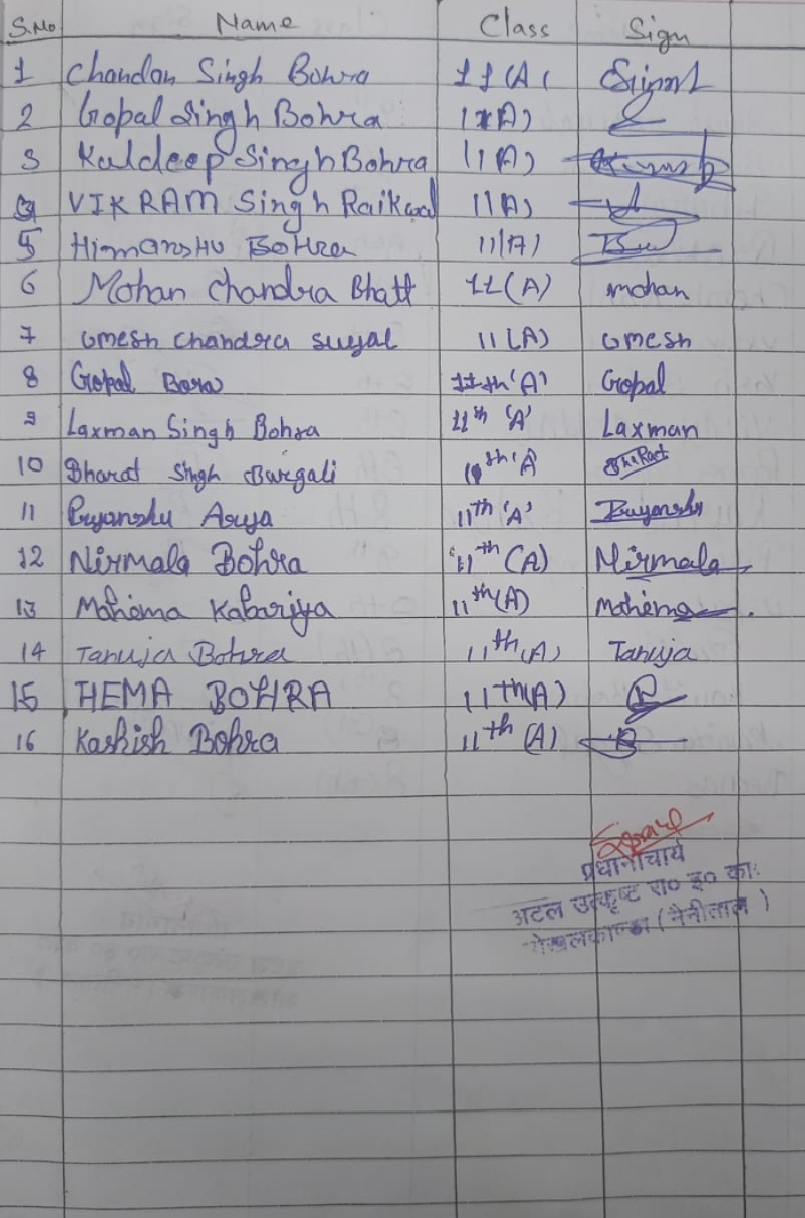 S.No Name Class Sign
1 Chandan Singh Bohra 11(A(
2 Gopal Singh Bohra 11(A)
3 Kuldeep Singh Bohra 11(A)
4 VIKRAM Singh Raikwal 11(A)
5 HimanSHU BoHra 11(A)
6 Mohan Chandra Bhatt 11(A) mohan
7 Umesh Chandra suyal 11(A) Umesh
8 Gopal Bora 11th'A' Gopal
9 Laxman Singh Bohra 11th 'A' Laxman
10 Bharat Singh Burgali 11th'A
11 Priyanshu Arya 11th 'A' Priyanshu
12 Nirmala Bohra 11th (A) Nirmala
13 Mahima Kabariya 11th(A) Mahima
14 Tanuja Bohra 11th(A) Tanuja
15 HEMA BOHRA 11th(A)
16 Kashish Bohra 11th (A)
प्रधानाचार्य
अटल उत्कृष्ट रा० इ० का०
ओखलकाण्डा (नैनीताल)